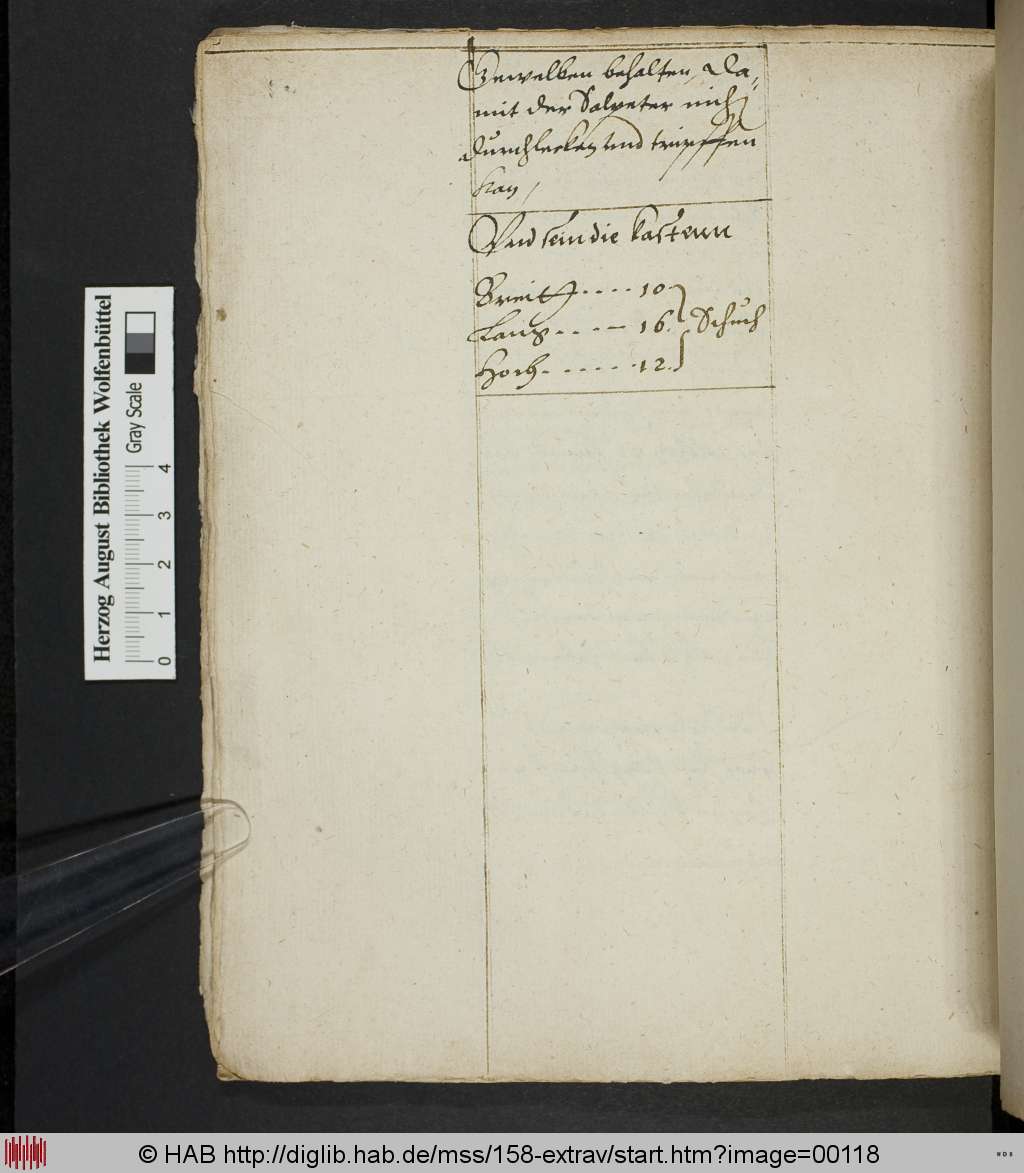 Gewelben behalten, Da-
mit der Salpeter nich
durchlecken und tripffen
kan,
Vnd sein die kastenn
Breitt ---- 10
Lang ---- 16 Schuch
Hoch ------ 12
Herzog August Bibliothek Wolfenbüttel
Gray Scale
0 1 2 3 4
© HAB http://diglib.hab.de/mss/158-extrav/start.htm?image=00118